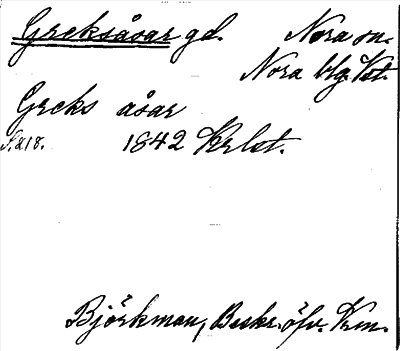 Greksåsar gd. Nora sn.
Nora blg. Vst.
Greks åsar
S. 218. 1842 Krlst.
Björkman, Beskr. öfv. Vsm.